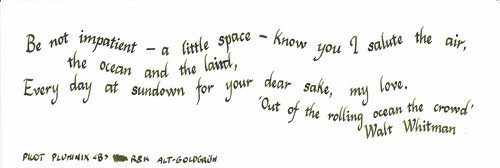 Be not impatient – a little space – know you I salute the air,
the ocean and the land,
Every day at sundown for your dear sake, my love.
'Out of the rolling ocean the crowd'
Walt Whitman
PILOT PLUMINIX <B> R&K ALT-GOLDGRÜN